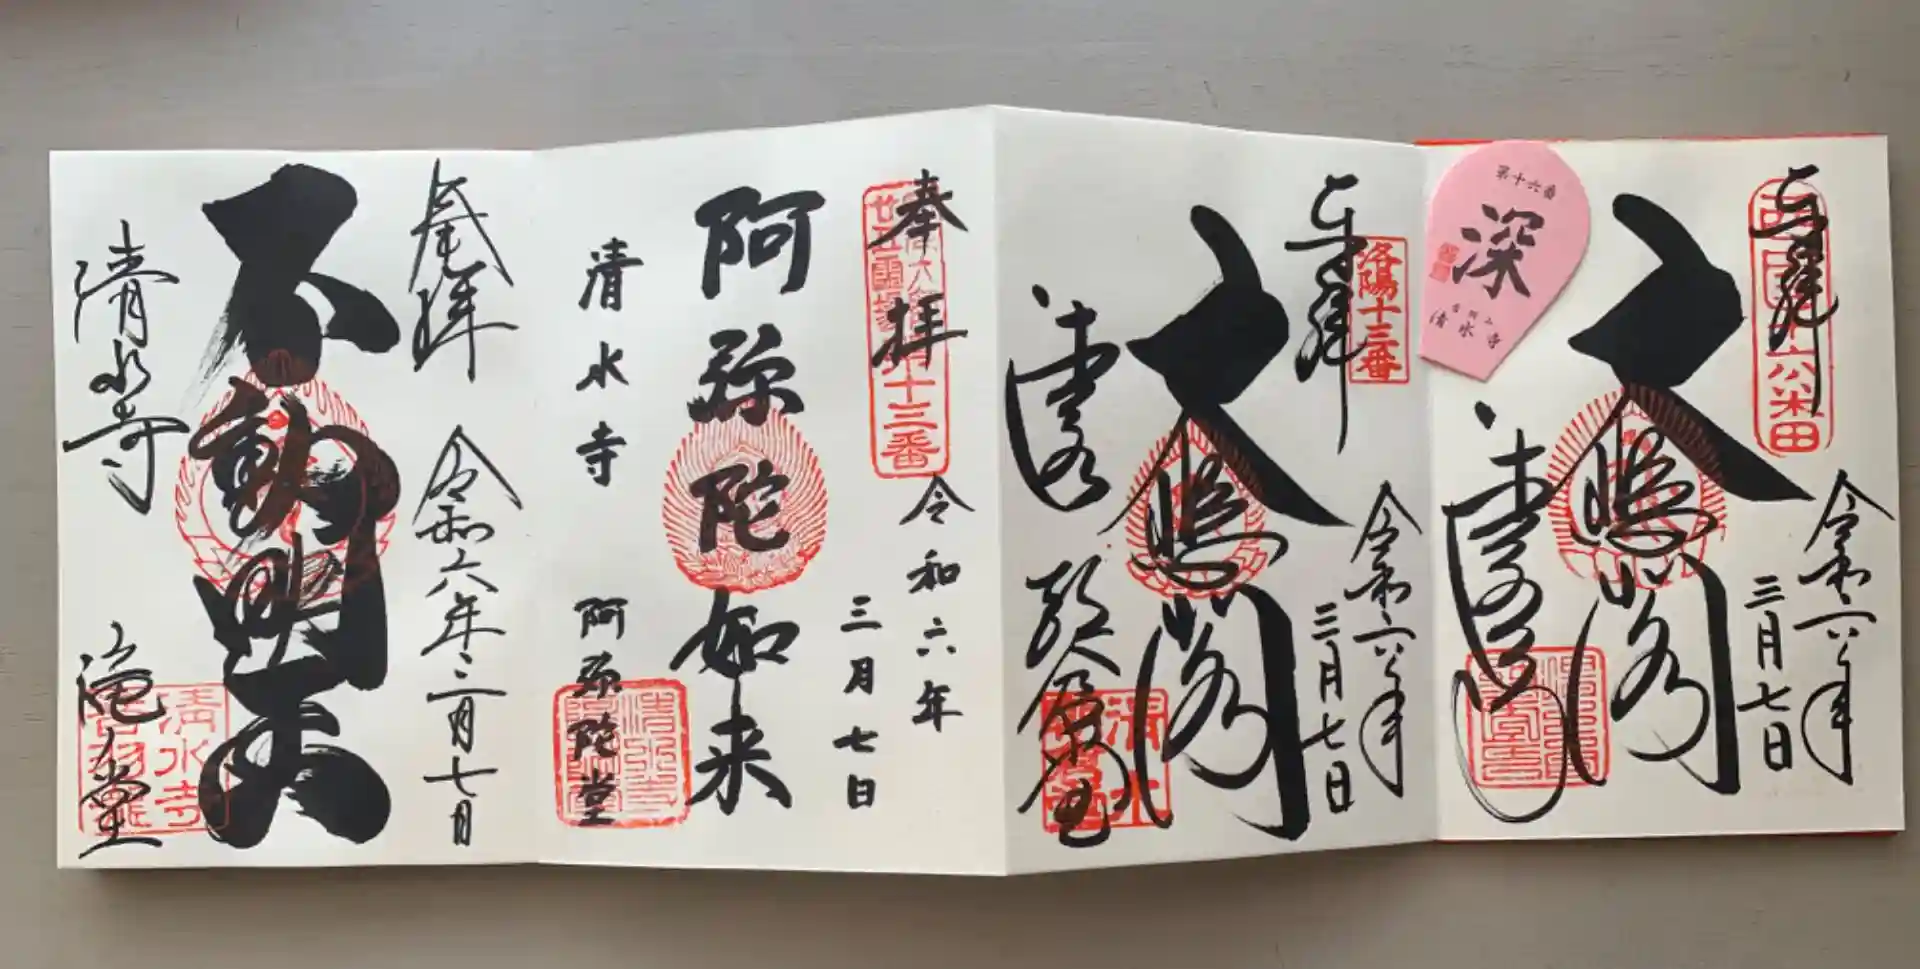 奉拝
西国十六番
令和六年
三月七日
大悲閣
清水寺
第十六番
深
音羽山
清水寺
奉拝
洛陽十三番
令和六年
三月七日
大悲閣
清水寺
朝倉堂
奉拝
十三番
令和六年
三月七日
阿弥陀如来
清水寺
阿弥陀堂
奉拝
令和六年三月七日
不動明王
清水寺
滝ノ堂
清水寺